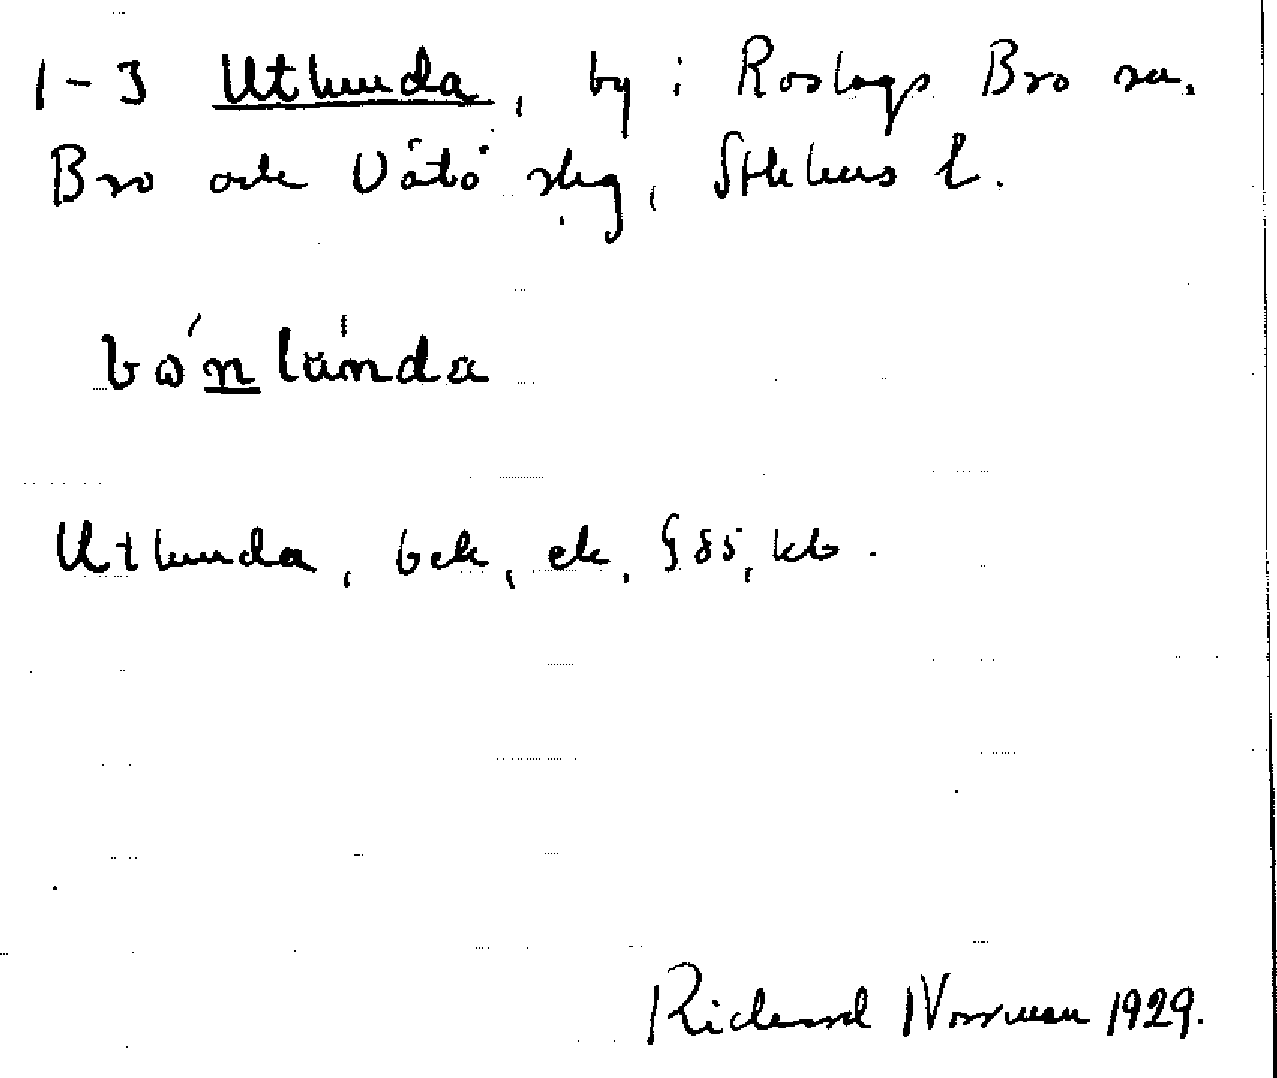 1-3 Utlunda, by i Roslags Bro sn.
Bro och Vätö skg, Sthlms l.
Utlunda, bek, ek, §85, kb.
Richard Norrman 1929.